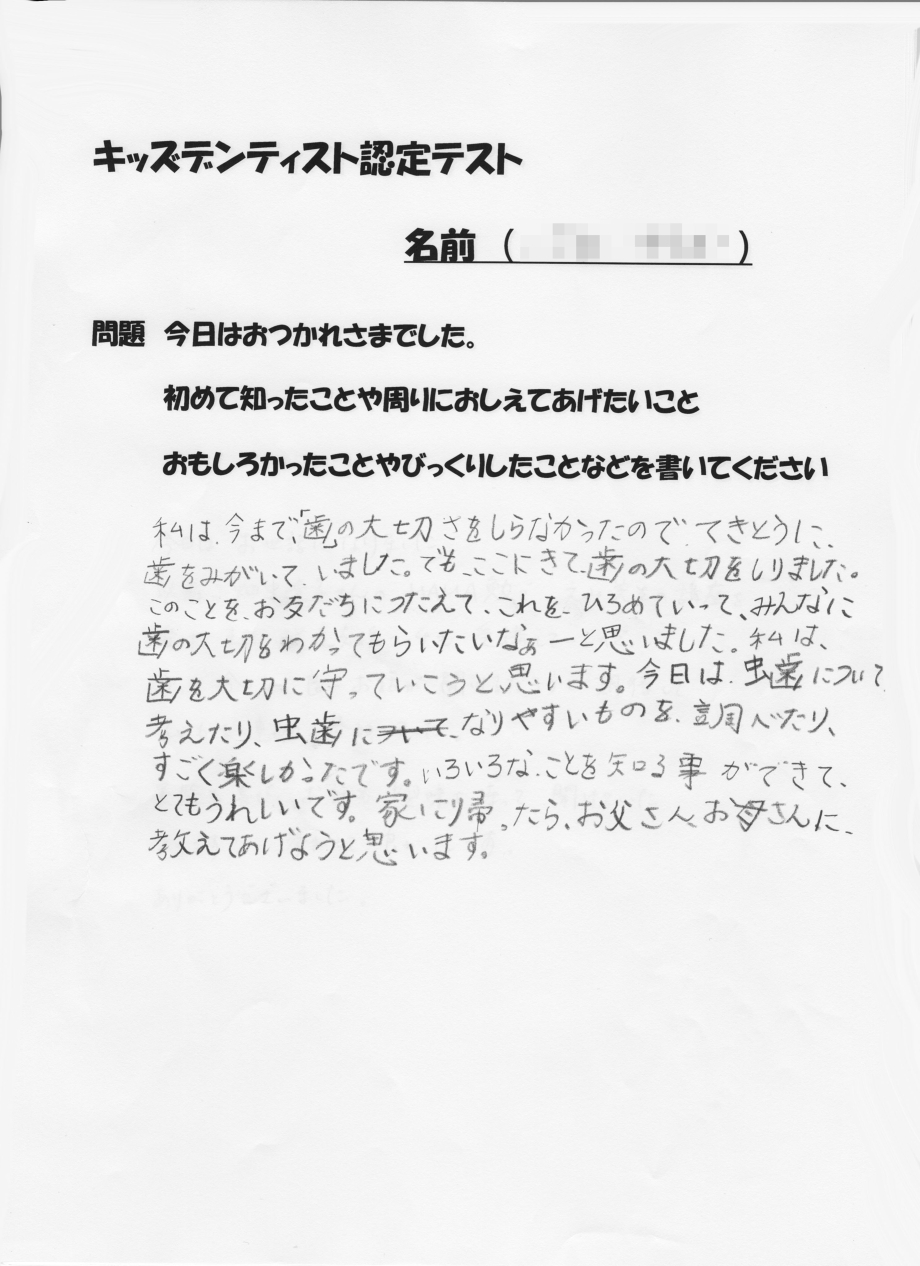 キッズデンティスト認定テスト
名前 ( )
問題 今日はおつかれさまでした。
初めて知ったことや周りにおしえてあげたいこと
おもしろかったことやびっくりしたことなどを書いてください
私は、今まで、「歯」の大切さをしらなかったので、てきとうに、
歯をみがいて、いました。でも、ここにきて、歯の大切をしりました。
このことを、お友だちにつたえて、これを、ひろめていって、みんなに
歯の大切をわかってもらいたいなぁーと思いました。私は、
歯を大切に守っていこうと、思います。今日は、虫歯について
考えたり、虫歯になりやすいものを、調べたり、
すごく楽しかったです。いろいろな、ことを知る事ができて、
とてもうれしいです。家に帰ったら、お父さん、お母さんに、
教えてあげようと思います。